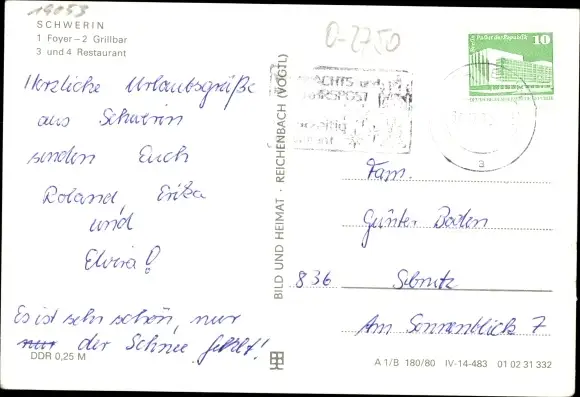 19053
SCHWERIN
1 Foyer – 2 Grillbar
3 und 4 Restaurant
Herzliche Urlaubsgrüße
aus Schwerin
senden Euch
Roland, Erika
und
Elvira!
Es ist sehr schön, nur
nur der Schnee fehlt!
DDR 0,25 M
BILD UND HEIMAT · REICHENBACH (VOGTL)
0-2750
10
Palast der Republik
a
Fam.
Günter Boden
836 Sebnitz
Am Sonnenblick 7
A 1/B 180/80 IV-14-483 01 02 31 332